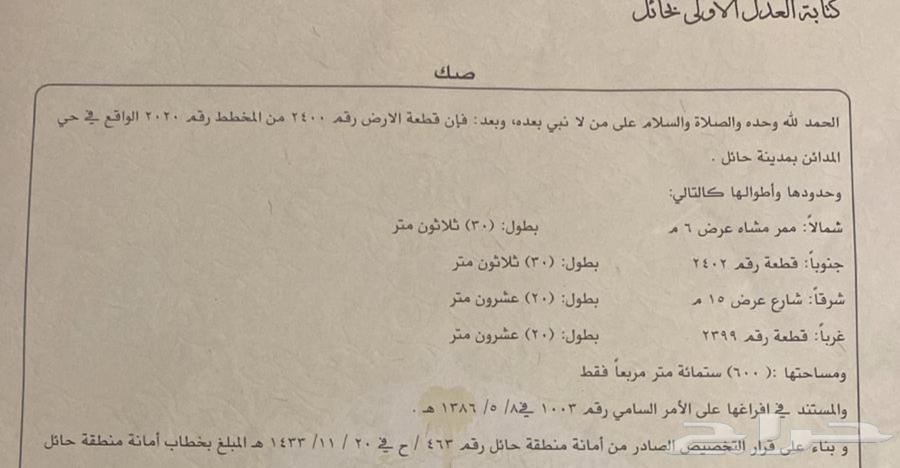 كتابة العدل الأولى بحائل
صك
الحمد لله وحده والصلاة والسلام على من لا نبي بعده، وبعد: فإن قطعة الارض رقم ٢٤٠٠ من المخطط رقم ٢٠٢٠ الواقع في حي
المدائن بمدينة حائل .
وحدودها وأطوالها كالتالي:
شمالاً: ممر مشاه عرض ٦ م بطول: (٣٠) ثلاثون متر
جنوباً: قطعة رقم ٢٤٠٢ بطول: (٣٠) ثلاثون متر
شرقاً: شارع عرض ١٥ م بطول: (٢٠) عشرون متر
غرباً: قطعة رقم ٢٣٩٩ بطول: (٢٠) عشرون متر
ومساحتها :( ٦٠٠) ستمائة متر مربعاً فقط
والمستند في افراغها على الأمر السامي رقم ١٠٠٣ في٨/ ٥/ ١٣٨٦ هـ .
و بناء على قرار التخصيص الصادر من أمانة منطقة حائل رقم ٤٦٣ / ح في ٢٠ / ١١/ ١٤٣٣ هـ المبلغ بخطاب أمانة منطقة حائل
حراج